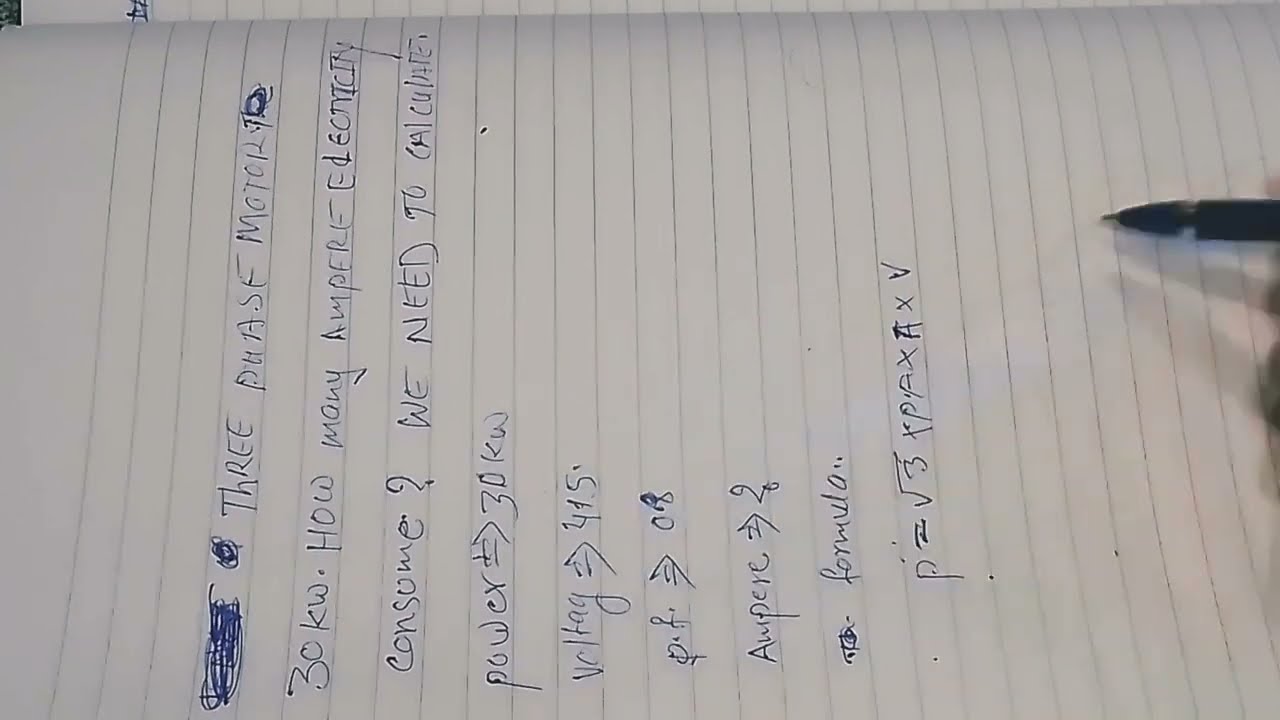 THREE PHASE MOTOR
30 KW. HOW many AMPERE ELECTRICITY
Consume ? WE NEED TO CALCULATE.
power => 30 KW
Voltag => 415.
p.f. => 08
Ampere => ?
formula..
P = √3 × P.F × A × V